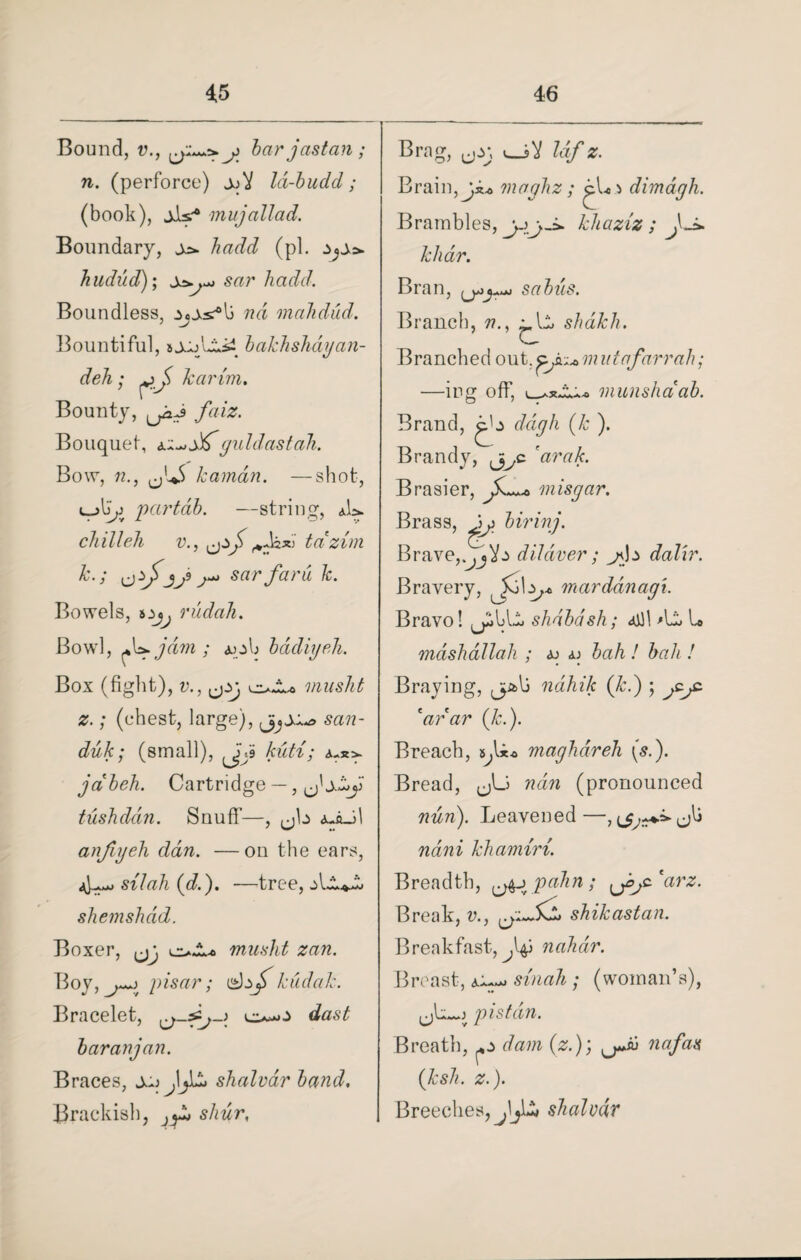 45
Bound, v., برجستن bar jastan;
n. (perforce) لابد lá-budd;
(book), مجلد mujallad.
Boundary, حد hadd (pl. حدود
hudúd); سرحد sar hadd.
Boundless, نامحدود ná mahdúd.
Bountiful, بخشاینده bakhsháyan-
deh; کریم karím.
Bounty, فیض faiz.
Bouquet, گلدسته guldastah.
Bow, n., کمان kamán. —shot,
پرتاب partáb. —string, چله
chilleh v., تعظیم کردن ta'zím
k.; سر فرو کردن sar farú k.
Bowels, روده rúdah.
Bowl, جام jám; بادیه bádiyeh.
Box (fight), v., مشت زدن musht
z.; (chest, large), صندوق san-
dúk; (small), قوطی kútí; جعبه
ja'beh. Cartridge —, توشدان
túshdán. Snuff—, انفیه دان
anfiyeh dán. —on the ears,
سیله sílah (d.). —tree, شمشاد
shemshád.
Boxer, مشت زن musht zan.
Boy, پسر pisar; کودک kúdak.
Bracelet, دست برنجن dast
baranjan.
Braces, شلوار بند shalvár band.
Brackish, شور shúr,
46
Brag, لاف زدن láf z.
Brain, مغز maghz; دماغ dimágh.
Brambles, خزیز khazíz; خار
khár.
Bran, سبوس sabús.
Branch, n., شاخ shákh.
Branched out, متفرع mutafarrah;
—ing off, منشعب munsha'ab.
Brand, داغ dágh (k ).
Brandy, عرق 'arak.
Brasier, مسگر misgar.
Brass, برنج birinj.
Brave, دلاور diláver; دلیر dalír.
Bravery, مردانگی mardánagí.
Bravo! شاباش shábásh; ما شاء الله
máshállah; به به bah! bah!
Braying, ناهق náhik (k.); عرعر
'ar'ar (k.).
Breach, مغاره magháreh (s.).
Bread, نان nán (pronounced
nún). Leavened —, نان خمیری
náni khamírí.
Breadth, پهن pahn; عرض 'arz.
Break, v., شکستن shikastan.
Breakfast, نهار nahár.
Breast, سینه sínah; (woman's),
پستان pistán.
Breath, دم dam (z.); نفس nafas
(ksh. z.).
Breeches, شلوار shalvár